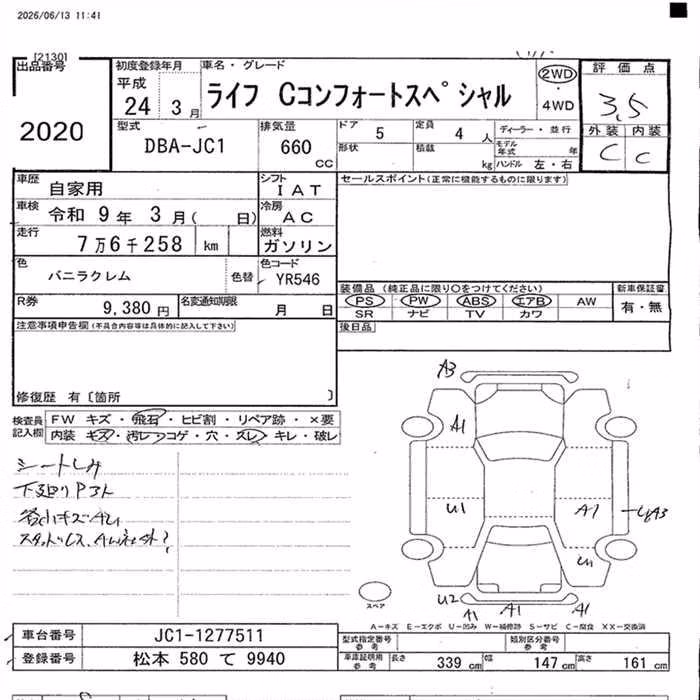 2026/06/13 11:41
[2130]
出品番号
2020
初度登録年月
平成
24 3月
車名・グレード
ライフ Cコンフォートスペシャル
2WD
・
4WD
評価点
3,5
外装 内装
C C
型式
DBA-JC1
排気量
660
CC
ドア
5
定員
4 人
形状
積載
kg
ディーラー・並行
モデル年式 年
ハンドル 左・右
車歴
自家用
シフト
IAT
車検
令和 9年 3月( 日)
冷房
AC
走行
7万6千258 km
燃料
ガソリン
色
バニラクレム
色替
色コード
YR546
R券
9,380 円
名変通知期限
月 日
セールスポイント(正常に機能するものに限ります)
装備品 (純正品に限り○をつけてください)
PS PW ABS エアB AW
SR ナビ TV カワ
新車保証書
有・無
後日品
注意事項申告欄(不具合内容等は具体的に記入して下さい)
修復歴 有〔箇所 〕
検査員
記入欄
FW キズ・飛石・ヒビ割・リペア跡・×要
内装 キズ・汚レ・コゲ・穴・スレ・キレ・破レ
シートしみ
下廻りPサト
各小キズAU
A3
A1
U1
A1
U2
A1
A1
A1
スペア
A-キズ E-エクボ U-凹み W-補修跡 S-サビ C-腐食 XX-交換済
車台番号
JC1-1277511
登録番号
松本 580 て 9940
型式指定番号
参考
類別区分番号
参考
車庫証明用
参考
長さ 339 cm 幅 147 cm 高さ 161 cm